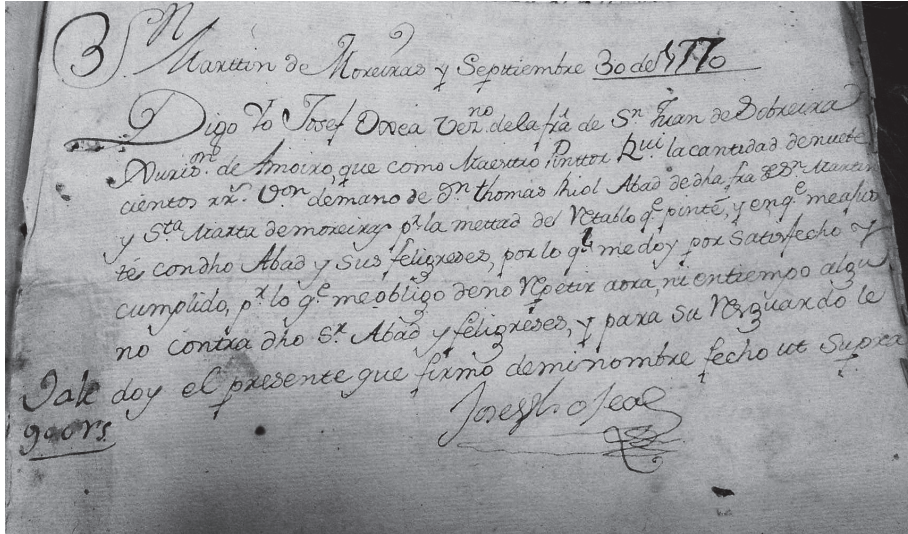 3 Sn Marttin de Moreiras y Septiembre 30 de 1770
Digo Yo Josef Ossea Vezno. de la fra de Sn Juan de Sobreira
Xurison. de Amoiro, que como Maestro Pinttor Rqui. la cantidad de nuete
cientos rrs. Von de mano de Dn thomas Riol Abad de dha fra de Sn Martin
y Sta Marta de moreiras pr la mettad del Retallo qe pinté, y en qe me ajus
té con dho Abad y sus feligreses, por lo qe me doy por satisfecho y
cumplido, pr lo qe me obligo de no Repetir aora, ni en tiempo algu
no contra dho Sr Abad y feligreses, y para su Resguardo le
doy el presente que firmo de mi nombre fecho ut supra
Vale
900 rs
Joseph osea